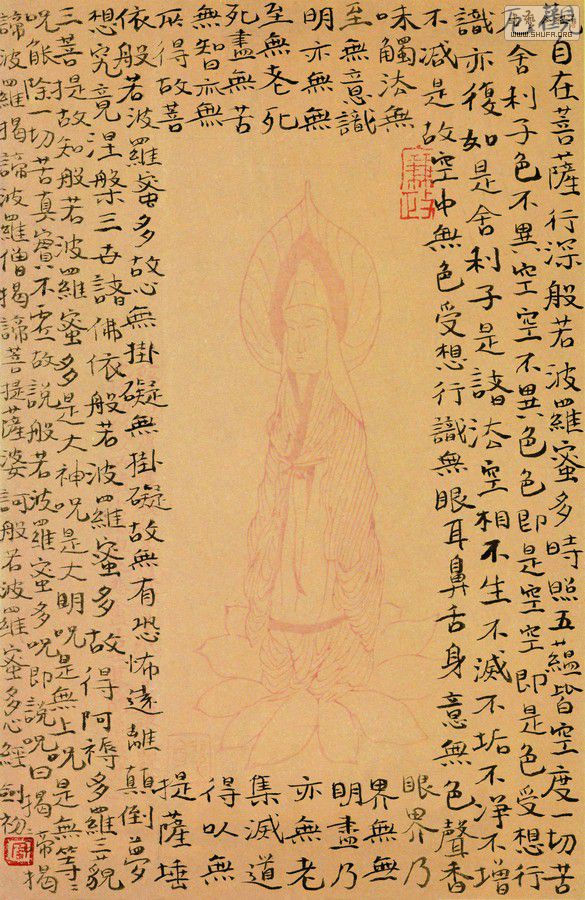 自在菩薩行深般若波羅蜜多時照五蘊皆空度一切苦
厄舍利子色不異空空不異色色即是空空即是色受想行
識亦復如是舍利子是諸法空相不生不滅不垢不淨不增
不減是故空中無色受想行識無眼耳鼻舌身意無色聲香
味觸法無眼界乃
至無意識界無無
明亦無無明盡乃
至無老死亦無老
死盡無苦集滅道
無智亦無得以無
所得故菩提薩埵
依般若波羅蜜多故心無掛礙無掛礙故無有恐怖遠離顛倒夢
想究竟涅槃三世諸佛依般若波羅蜜多故得阿耨多羅三藐
三菩提故知般若波羅蜜多是大神咒是大明咒是無上咒是無等々
咒能除一切苦真實不虛故說般若波羅蜜多咒即說咒曰揭帝揭
諦波羅揭諦波羅僧揭諦菩提薩婆訶般若波羅蜜多心經
WWW.SHUFA.ORG